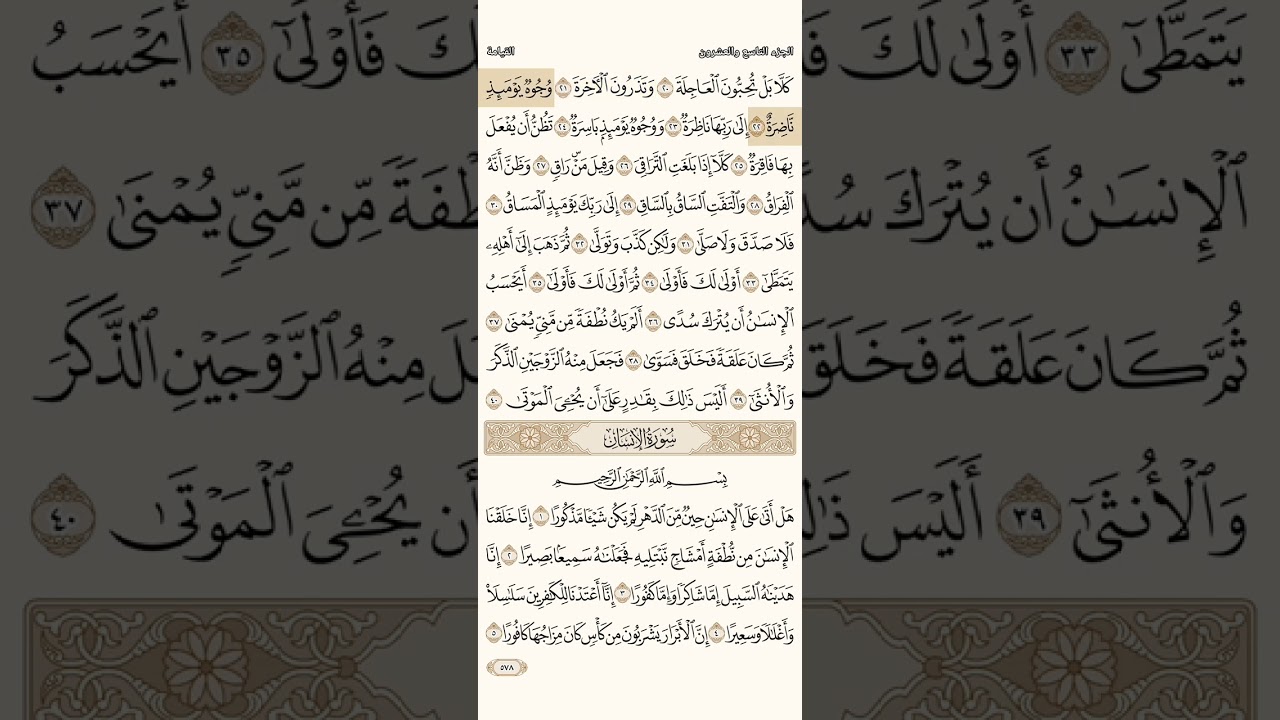 الجزء التاسع والعشرون القيامة
كَلَّا بَلْ تُحِبُّونَ ٱلْعَاجِلَةَ ٢٠ وَتَذَرُونَ ٱلْءَاخِرَةَ ٢١ وُجُوهٌ يَوْمَئِذٍ
نَّاضِرَةٌ ٢٢ إِلَىٰ رَبِّهَا نَاظِرَةٌ ٢٣ وَوُجُوهٌ يَوْمَئِذٍۭ بَاسِرَةٌ ٢٤ تَظُنُّ أَن يُفْعَلَ
بِهَا فَاقِرَةٌ ٢٥ كَلَّآ إِذَا بَلَغَتِ ٱلتَّرَاقِيَ ٢٦ وَقِيلَ مَنْۜ رَاقٍ ٢٧ وَظَنَّ أَنَّهُ
ٱلْفِرَاقُ ٢٨ وَٱلْتَفَّتِ ٱلسَّاقُ بِٱلسَّاقِ ٢٩ إِلَىٰ رَبِّكَ يَوْمَئِذٍ ٱلْمَسَاقُ ٣٠
فَلَا صَدَّقَ وَلَا صَلَّىٰ ٣١ وَلَٰكِن كَذَّبَ وَتَوَلَّىٰ ٣٢ ثُمَّ ذَهَبَ إِلَىٰٓ أَهْلِهِۦ
يَتَمَطَّىٰٓ ٣٣ أَوْلَىٰ لَكَ فَأَوْلَىٰ ٣٤ ثُمَّ أَوْلَىٰ لَكَ فَأَوْلَىٰٓ ٣٥ أَيَحْسَبُ
ٱلْإِنسَٰنُ أَن يُتْرَكَ سُدًى ٣٦ أَلَمْ يَكُ نُطْفَةً مِّن مَّنِىٍّ يُمْنَىٰ ٣٧
ثُمَّ كَانَ عَلَقَةً فَخَلَقَ فَسَوَّىٰ ٣٨ فَجَعَلَ مِنْهُ ٱلزَّوْجَيْنِ ٱلذَّكَرَ
وَٱلْأُنثَىٰٓ ٣٩ أَلَيْسَ ذَٰلِكَ بِقَٰدِرٍ عَلَىٰٓ أَن يُحْـِۧىَ ٱلْمَوْتَىٰ ٤٠
سُورَةُ الإِنسَانِ
بِسْمِ ٱللَّهِ ٱلرَّحْمَٰنِ ٱلرَّحِيمِ
هَلْ أَتَىٰ عَلَى ٱلْإِنسَٰنِ حِينٌ مِّنَ ٱلدَّهْرِ لَمْ يَكُن شَيْـًٔا مَّذْكُورًا ١ إِنَّا خَلَقْنَا
ٱلْإِنسَٰنَ مِن نُّطْفَةٍ أَمْشَاجٍ نَّبْتَلِيهِ فَجَعَلْنَٰهُ سَمِيعًۢا بَصِيرًا ٢ إِنَّا
هَدَيْنَٰهُ ٱلسَّبِيلَ إِمَّا شَاكِرًا وَإِمَّا كَفُورًا ٣ إِنَّآ أَعْتَدْنَا لِلْكَٰفِرِينَ سَلَٰسِلَا۟
وَأَغْلَٰلًا وَسَعِيرًا ٤ إِنَّ ٱلْأَبْرَارَ يَشْرَبُونَ مِن كَأْسٍ كَانَ مِزَاجُهَا كَافُورًا ٥
٥٧٨
يَتَمَطَّىٰٓ ٣٣ أَوْلَىٰ لَكَ
كَ فَأَوْلَىٰٓ ٣٥ أَيَحْسَبُ
ٱلْإِنسَٰنُ أَن يُتْرَكَ
طْفَةً مِّن مَّنِىٍّ يُمْنَىٰ ٣٧
ثُمَّ كَانَ عَلَقَةً فَخَلَقَ
لَ مِنْهُ ٱلزَّوْجَيْنِ ٱلذَّكَرَ
وَٱلْأُنثَىٰٓ ٣٩ أَلَيْسَ
أَن يُحْـِۧىَ ٱلْمَوْتَىٰ ٤٠